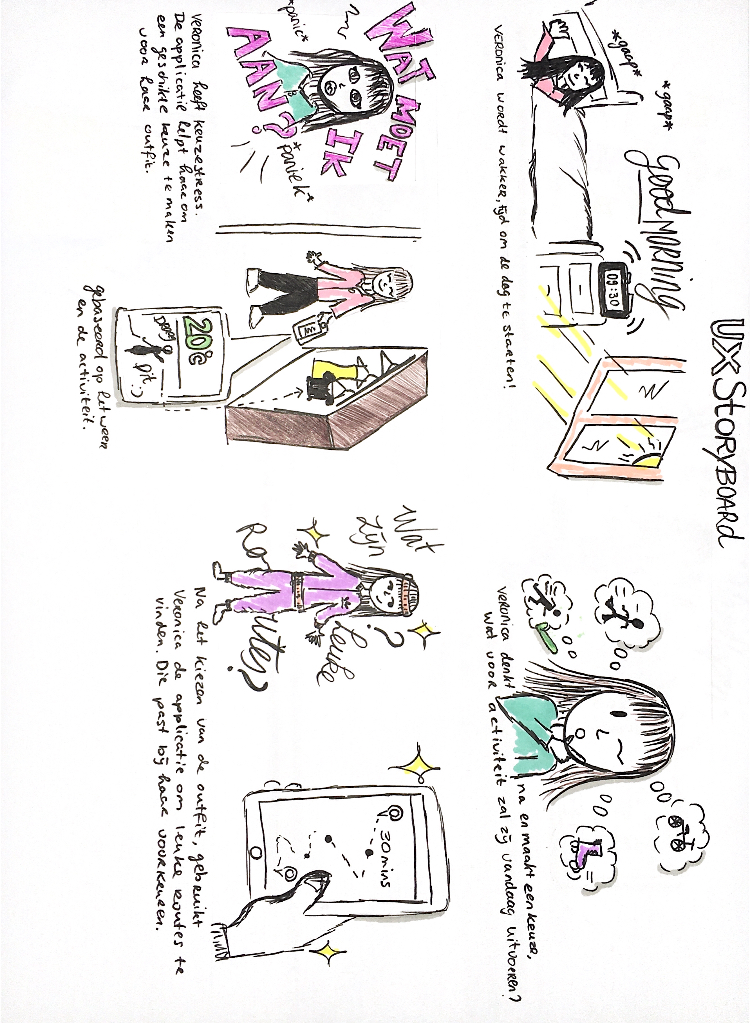 UX STORYBOARD
*gaap*
*gaap*
good MORNING
09:30
Veronica wordt wakker, tijd om de dag te starten!
Veronica denkt na en maakt een keuze,
wat voor activiteit zal zij vandaag uitvoeren?
WAT MOET
IK
AAN?
*panic*
*paniek*
Veronica heeft keuzestress.
De applicatie helpt haar om
een geschikte keuze te maken
voor haar outfit.
20°C
Draag
dit :)
gebaseerd op het weer
en de activiteit.
Wat
zijn
leuke
Routes?
?
30 mins
Na het kiezen van de outfit, gebruikt
Veronica de applicatie om leuke routes te
vinden. Die past bij haar voorkeuren.